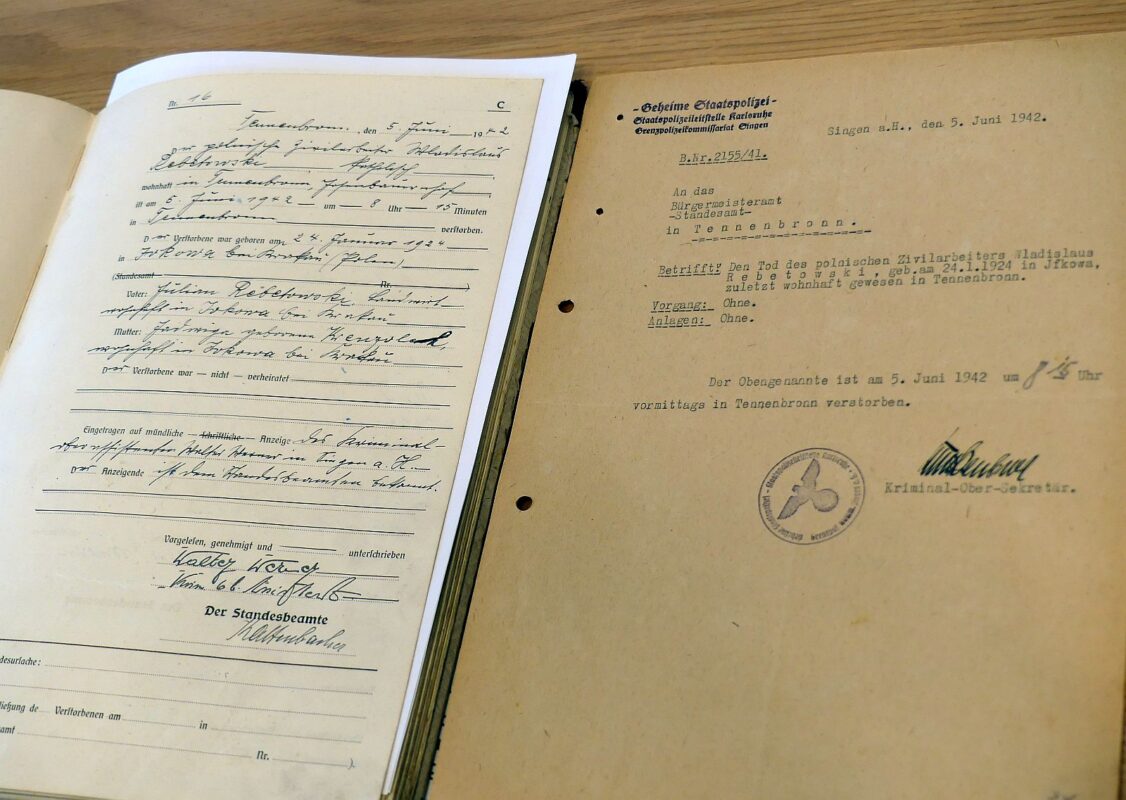 Nr. 16 C
Tennenbronn, den 5. Juni 1942
Der polnische Zivilarbeiter Wladislaus
Rebetowski, katholisch
wohnhaft in Tennenbronn
ist am 5. Juni 1942 um 8 Uhr 15 Minuten
in Tennenbronn verstorben.
Der Verstorbene war geboren am 24. Januar 1924
in Jokowa bei Krakau (Polen)
(Standesamt Nr. )
Vater: Julian Rebetowski, Landwirt
wohnhaft in Jokowa bei Krakau
Mutter: Hedwiga geborene
wohnhaft in Jokowa bei Krakau
Der Verstorbene war — nicht — verheiratet
Eingetragen auf mündliche — schriftliche — Anzeige des Kriminal-
oberassistenten Walter Werner in Singen a. H.
Der Anzeigende ist dem Standesbeamten bekannt.
Vorgelesen, genehmigt und unterschrieben
Walter Werner
Der Standesbeamte
Kaltenbacher
desursache:
ließung de Verstorbenen am in
amt Nr. ).
-Geheime Staatspolizei-
Staatspolizeileitstelle Karlsruhe
Grenzpolizeikommissariat Singen
Singen a.H., den 5. Juni 1942.
B.Nr.2155/41.
An das
Bürgermeisteramt
-Standesamt-
in Tennenbronn.
Betrifft: Den Tod des polnischen Zivilarbeiters Wladislaus
Rebetowski, geb.am 24.1.1924 in Jfkowa,
zuletzt wohnhaft gewesen in Tennenbronn.
Vorgang: Ohne.
Anlagen: Ohne.
Der Obengenannte ist am 5. Juni 1942 um 8 15 Uhr
vormittags in Tennenbronn verstorben.
Kriminal-Ober-Sekretär.